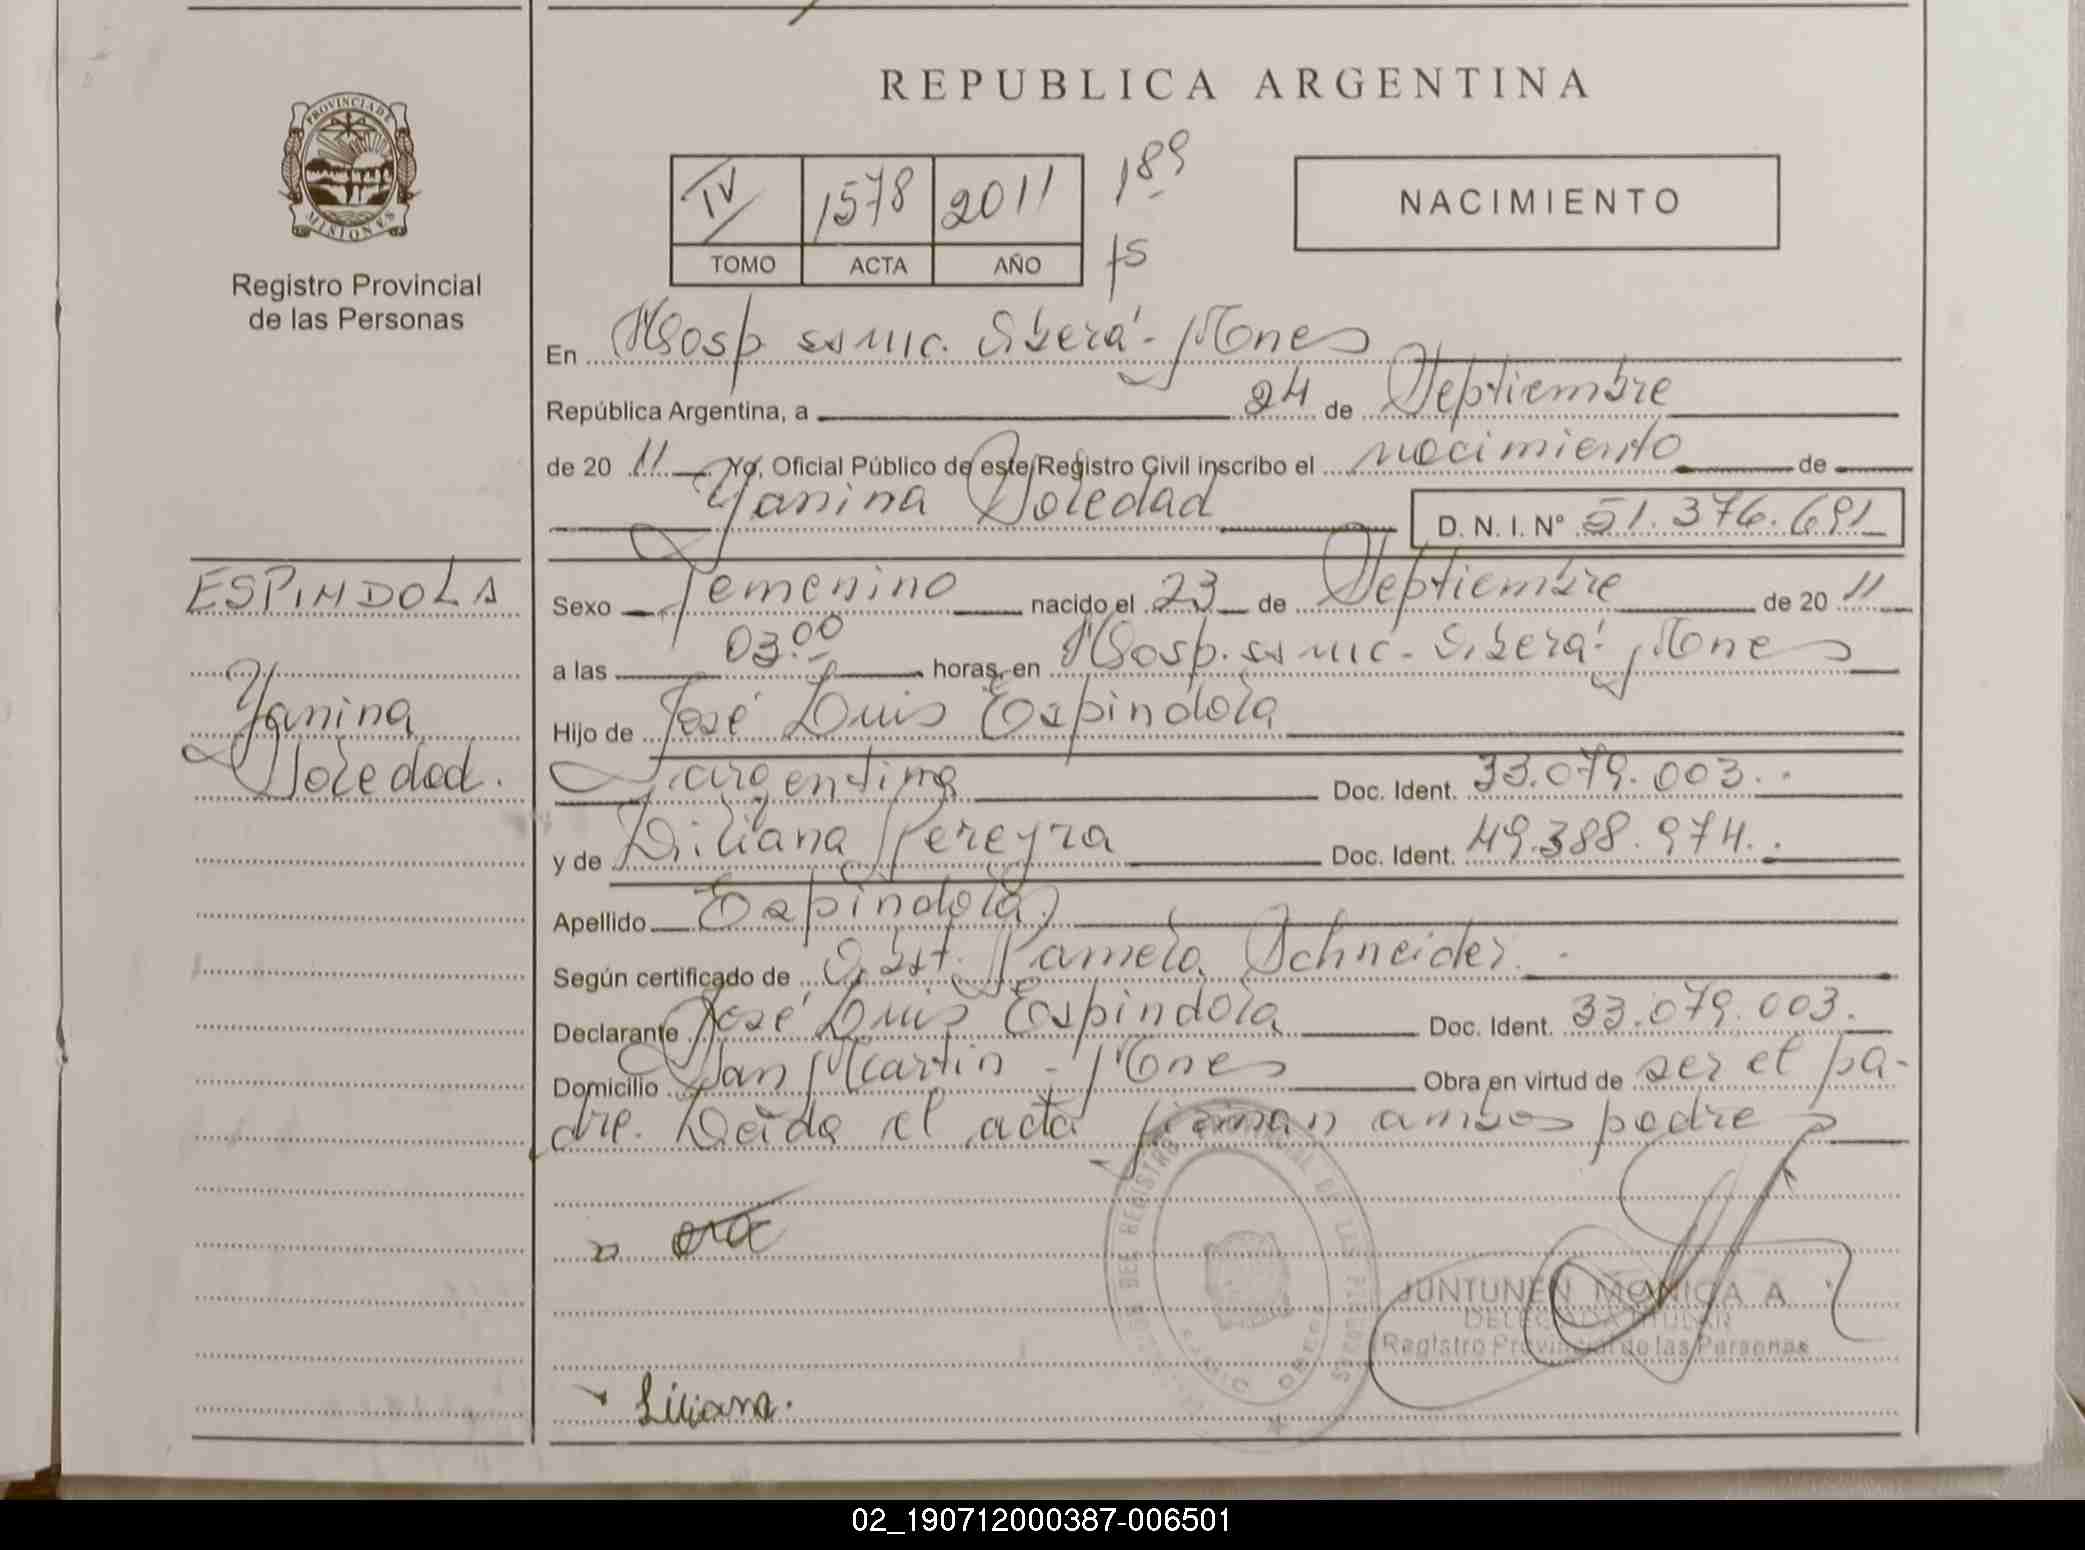 REPUBLICA ARGENTINA
PROVINCIA DE
MISIONES
Registro Provincial
de las Personas
IV 1578 2011 189
TOMO ACTA AÑO fs
NACIMIENTO
En Hosp ss mic. Oberá - Mones
República Argentina, a 24 de Septiembre
de 20 11 Yo, Oficial Público de este Registro Civil inscribo el nacimiento de
Yanina Soledad D. N. I. N° 51.376.691
ESPINDOLA
Yanina
Soledad.
Sexo Femenino nacido el 23 de Septiembre de 20 11
a las 03.00 horas, en Hosp. ss mic - Oberá - Mones
Hijo de José Luis Espindola
argentina Doc. Ident. 33.079.003.
y de Liliana Pereyra Doc. Ident. 49.388.974.
Apellido Espindola
Según certificado de Obst. Pamela Schneider.
Declarante José Luis Espindola Doc. Ident. 33.079.003.
Domicilio San Martin - Mones Obra en virtud de ser el pa-
dre. Leída el acta firman ambos padres
JUNTUNEN MONICA A
DELEGADA TITULAR
Registro Provincial de las Personas
Liliana.
02_190712000387-006501